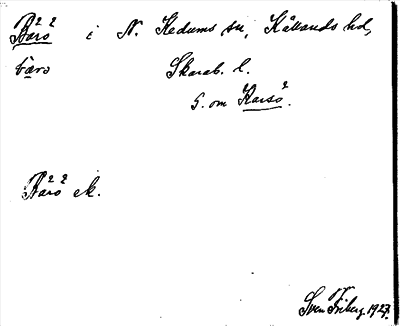 Barö i N. Kedums sn, Kållands hd,
båro Skarab. l.
S. om Karsö.
Barö ek.
Sven Friberg. 1927.